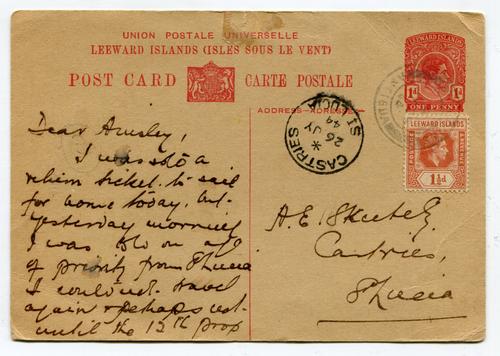 UNION POSTALE UNIVERSELLE
LEEWARD ISLANDS (ISLES SOUS LE VENT)
POST CARD CARTE POSTALE
ADDRESS-ADRESSE
LEEWARD ISLANDS
1d 1d
ONE PENNY
LEEWARD ISLANDS
POSTAGE REVENUE
1½d
CASTRIES
26 JY
44
ST LUCIA
Dear
I was sold a
return ticket to sail
for home today, but
yesterday morning
I was told on a/c
of priority from St Lucia
I could not travel
again & perhaps not
until the 12th prox
A.E.
Castries,
St Lucia